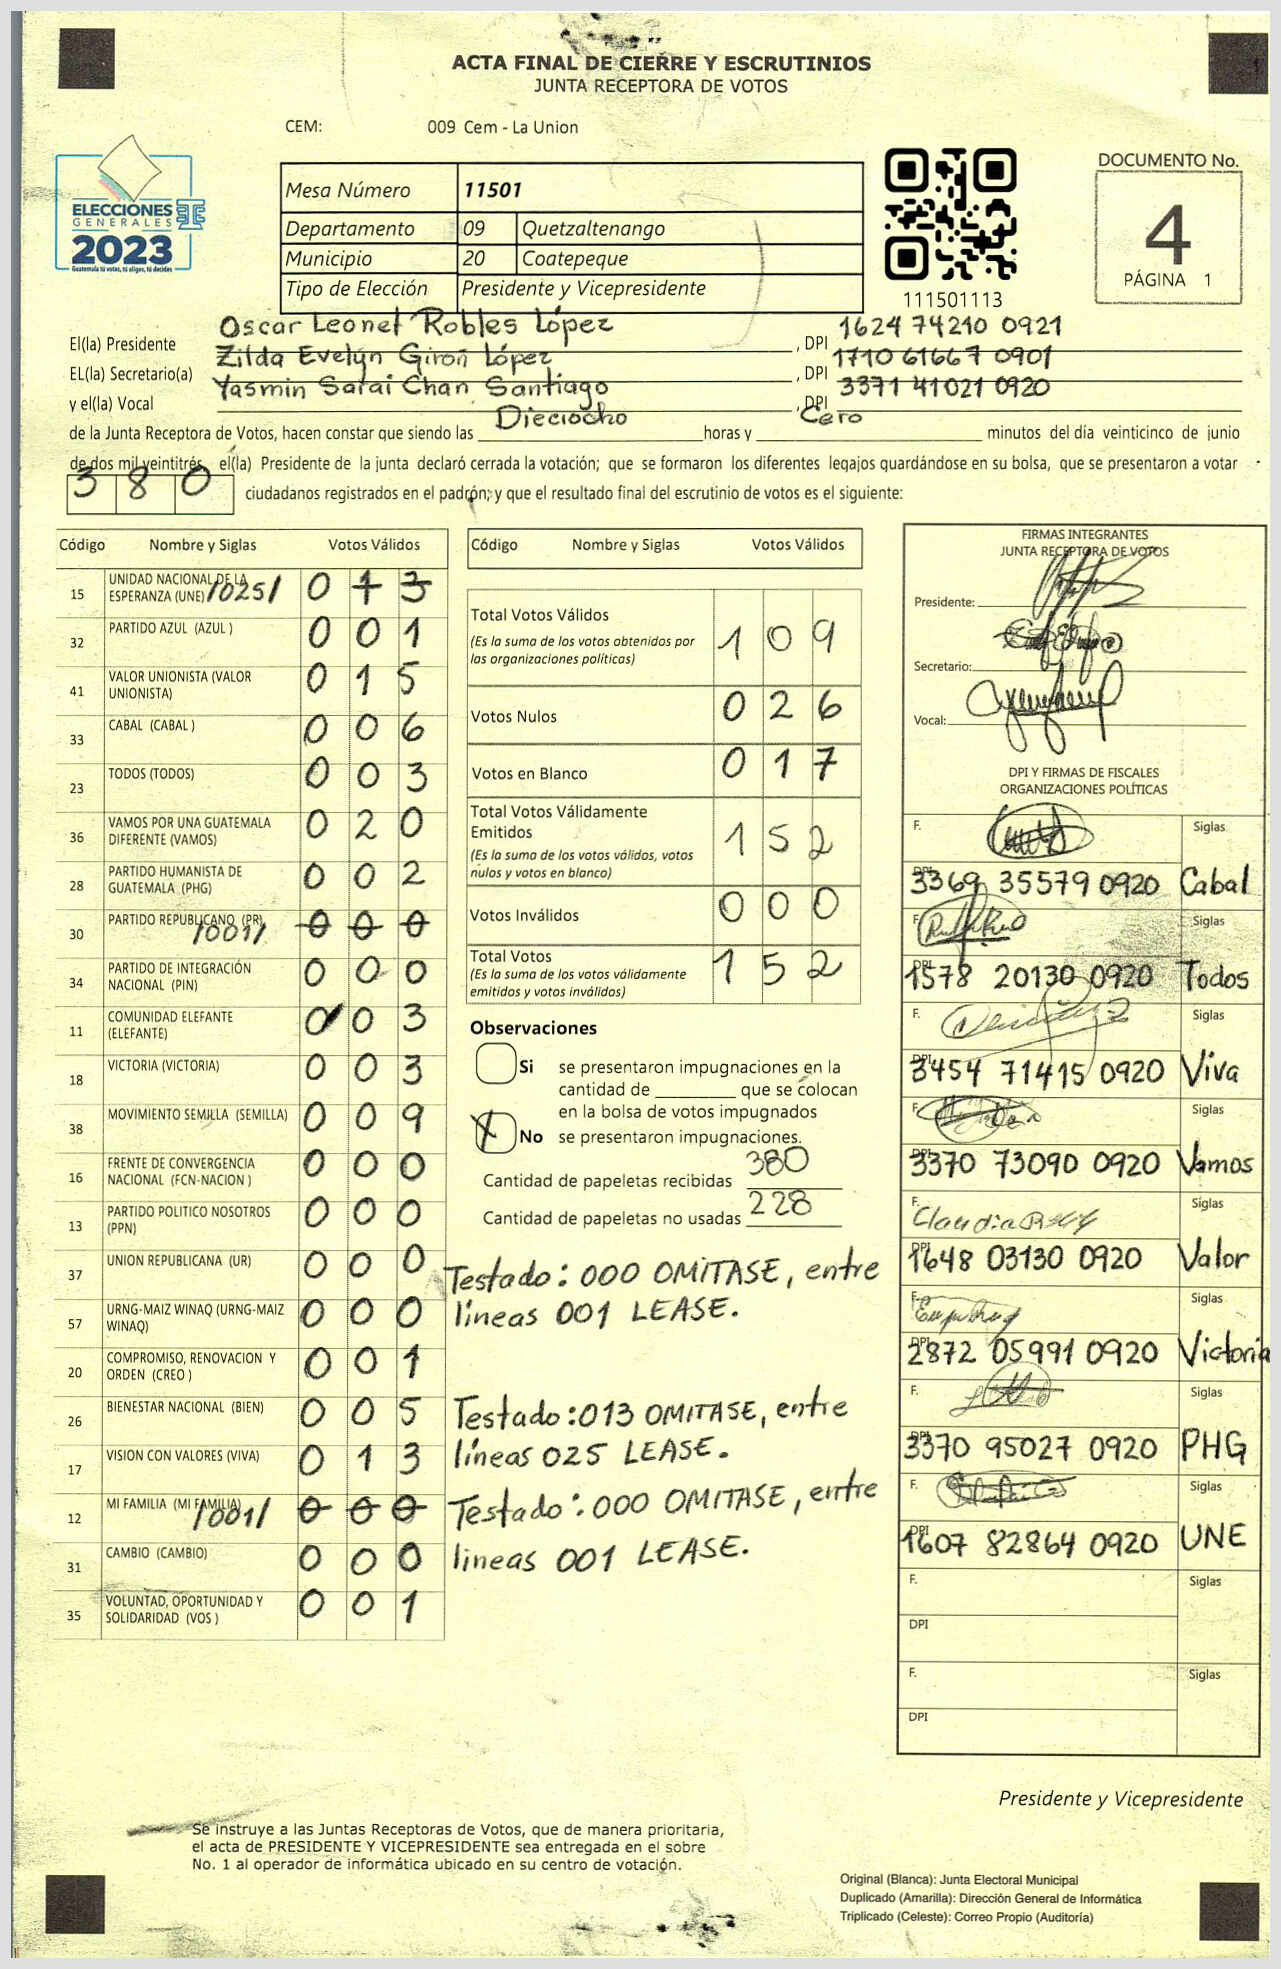 ACTA FINAL DE CIERRE Y ESCRUTINIOS
JUNTA RECEPTORA DE VOTOS
CEM: 009 Cem - La Union
ELECCIONES
GENERALES
2023
Guatemala tú votas, tú eliges, tú decides
Mesa Número 11501
Departamento 09 Quetzaltenango
Municipio 20 Coatepeque
Tipo de Elección Presidente y Vicepresidente
111501113
DOCUMENTO No.
4
PÁGINA 1
El(la) Presidente Oscar Leonel Robles López, DPI 1624 74210 0921
EL(la) Secretario(a) Zilda Evelyn Girón López, DPI 1710 61667 0901
y el(la) Vocal Yasmin Sarai Chan Santiago, DPI 3371 41021 0920
de la Junta Receptora de Votos, hacen constar que siendo las Dieciocho horas y Cero minutos del día veinticinco de junio
de dos mil veintitrés, el(la) Presidente de la junta declaró cerrada la votación; que se formaron los diferentes legajos quardándose en su bolsa, que se presentaron a votar
380 ciudadanos registrados en el padrón; y que el resultado final del escrutinio de votos es el siguiente:
Código Nombre y Siglas Votos Válidos
15 UNIDAD NACIONAL DE LA ESPERANZA (UNE) /025/ 0 1 3
32 PARTIDO AZUL (AZUL ) 0 0 1
41 VALOR UNIONISTA (VALOR UNIONISTA) 0 1 5
33 CABAL (CABAL ) 0 0 6
23 TODOS (TODOS) 0 0 3
36 VAMOS POR UNA GUATEMALA DIFERENTE (VAMOS) 0 2 0
28 PARTIDO HUMANISTA DE GUATEMALA (PHG) 0 0 2
30 PARTIDO REPUBLICANO (PR) /001/ 0 0 0
34 PARTIDO DE INTEGRACIÓN NACIONAL (PIN) 0 0 0
11 COMUNIDAD ELEFANTE (ELEFANTE) 0 0 3
18 VICTORIA (VICTORIA) 0 0 3
38 MOVIMIENTO SEMILLA (SEMILLA) 0 0 9
16 FRENTE DE CONVERGENCIA NACIONAL (FCN-NACION ) 0 0 0
13 PARTIDO POLITICO NOSOTROS (PPN) 0 0 0
37 UNION REPUBLICANA (UR) 0 0 0
57 URNG-MAIZ WINAQ (URNG-MAIZ WINAQ) 0 0 0
20 COMPROMISO, RENOVACION Y ORDEN (CREO ) 0 0 1
26 BIENESTAR NACIONAL (BIEN) 0 0 5
17 VISION CON VALORES (VIVA) 0 1 3
12 MI FAMILIA (MI FAMILIA) /001/ 0 0 0
31 CAMBIO (CAMBIO) 0 0 0
35 VOLUNTAD, OPORTUNIDAD Y SOLIDARIDAD (VOS ) 0 0 1
Código Nombre y Siglas Votos Válidos
Total Votos Válidos 1 0 9
(Es la suma de los votos obtenidos por
las organizaciones políticas)
Votos Nulos 0 2 6
Votos en Blanco 0 1 7
Total Votos Válidamente
Emitidos 1 5 2
(Es la suma de los votos válidos, votos
nulos y votos en blanco)
Votos Inválidos 0 0 0
Total Votos 1 5 2
(Es la suma de los votos válidamente
emitidos y votos inválidos)
Observaciones
Si se presentaron impugnaciones en la
cantidad de ________ que se colocan
en la bolsa de votos impugnados
X No se presentaron impugnaciones.
Cantidad de papeletas recibidas 380
Cantidad de papeletas no usadas 228
Testado: 000 OMITASE, entre
lineas 001 LEASE.
Testado: 013 OMITASE, entre
líneas 025 LEASE.
Testado: 000 OMITASE, entre
lineas 001 LEASE.
FIRMAS INTEGRANTES
JUNTA RECEPTORA DE VOTOS
Presidente:
Secretario:
Vocal:
DPI Y FIRMAS DE FISCALES
ORGANIZACIONES POLÍTICAS
F. Siglas
DPI 3369 35579 0920 Cabal
F. Siglas
DPI 1578 20130 0920 Todos
F. Siglas
DPI 3454 71415 0920 Viva
F. Siglas
DPI 3370 73090 0920 Vamos
F. Claudia Siglas
DPI 1648 03130 0920 Valor
F. Siglas
DPI 2872 05991 0920 Victoria
F. Siglas
DPI 3370 95027 0920 PHG
F. Siglas
DPI 1607 82864 0920 UNE
F. Siglas
DPI
F. Siglas
DPI
Presidente y Vicepresidente
Se instruye a las Juntas Receptoras de Votos, que de manera prioritaria,
el acta de PRESIDENTE Y VICEPRESIDENTE sea entregada en el sobre
No. 1 al operador de informática ubicado en su centro de votación.
Original (Blanca): Junta Electoral Municipal
Duplicado (Amarilla): Dirección General de Informática
Triplicado (Celeste): Correo Propio (Auditoría)